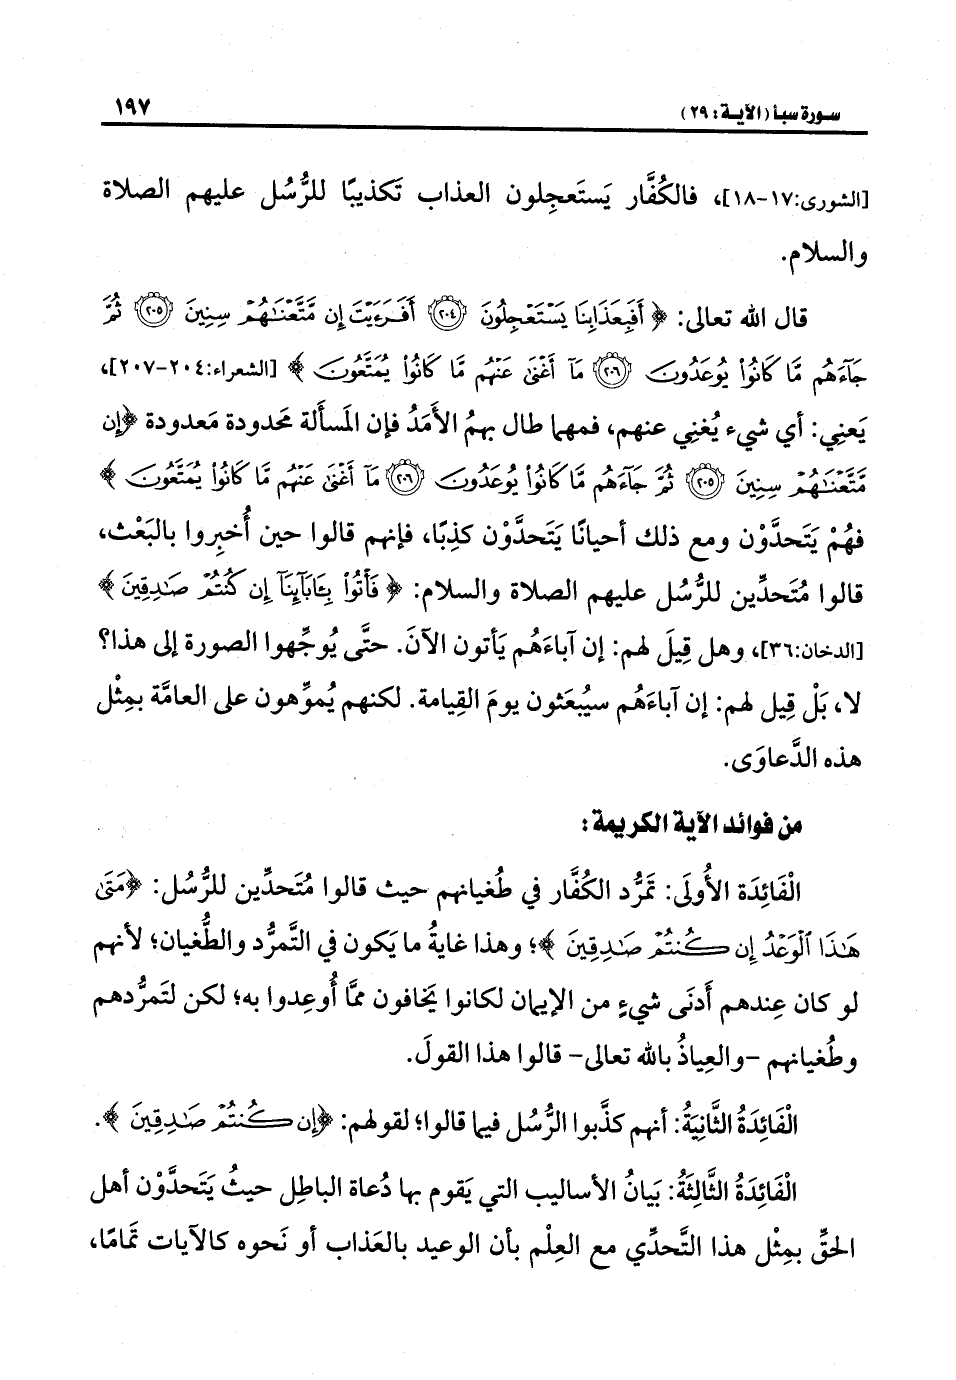 سورة سبأ (الآية: ٢٩) ١٩٧
[الشورى:١٧-١٨]، فالكُفَّار يَستَعجِلون العذاب تَكذيبًا للرُّسُل عليهم الصلاة
والسلام.
قال الله تعالى: ﴿أَفَبِعَذَابِنَا يَسْتَعْجِلُونَ ﴿٢٠٤﴾ أَفَرَءَيْتَ إِن مَّتَّعْنَٰهُمْ سِنِينَ ﴿٢٠٥﴾ ثُمَّ
جَآءَهُم مَّا كَانُوا۟ يُوعَدُونَ ﴿٢٠٦﴾ مَآ أَغْنَىٰ عَنْهُم مَّا كَانُوا۟ يُمَتَّعُونَ﴾ [الشعراء:٢٠٤-٢٠٧]،
يَعنِي: أي شيء يُغنِي عنهم، فمهما طال بهِمُ الأَمَدُ فإن المَسأَلة مَحدودة مَعدودة ﴿إِن
مَّتَّعْنَٰهُمْ سِنِينَ ﴿٢٠٥﴾ ثُمَّ جَآءَهُم مَّا كَانُوا۟ يُوعَدُونَ ﴿٢٠٦﴾ مَآ أَغْنَىٰ عَنْهُم مَّا كَانُوا۟ يُمَتَّعُونَ﴾
فهُمْ يَتَحدَّوْن ومع ذلك أحيانًا يَتَحدَّوْن كذِبًا، فإنهم قالوا حين أُخبِروا بالبَعْث،
قالوا مُتَحدِّين للرُّسُل عليهم الصلاة والسلام: ﴿فَأْتُوا۟ بِـَٔابَآئِنَآ إِن كُنتُمْ صَٰدِقِينَ﴾
[الدخان:٣٦]، وهل قِيلَ لهم: إن آباءَهُم يَأتون الآنَ. حتَّى يُوجِّهوا الصورة إلى هذا؟
لا، بَلْ قِيل لهم: إن آباءَهُم سيُبعَثون يومَ القِيامة. لكنهم يُموِّهون على العامَّة بمِثْل
هذه الدَّعاوَى.
من فوائد الآية الكريمة:
الْفَائِدَة الأُولَى: تَمرُّد الكُفَّار في طُغيانهم حيث قالوا مُتَحدِّين للرُّسُل: ﴿مَتَىٰ
هَٰذَا ٱلْوَعْدُ إِن كُنتُمْ صَٰدِقِينَ﴾؛ وهذا غايةُ ما يَكون في التَّمرُّد والطُّغيان؛ لأنهم
لو كان عِندهم أَدنَى شيءٍ من الإيمان لكانوا يَخافون ممَّا أُوعِدوا به؛ لكن لتَمرُّدهم
وطُغيانهم -والعِياذُ بالله تعالى- قالوا هذا القولَ.
الْفَائِدَةُ الثَّانِيَةُ: أنهم كذَّبوا الرُّسُل فيما قالوا؛ لقولهم: ﴿إِن كُنتُمْ صَٰدِقِينَ﴾.
الْفَائِدَةُ الثَّالِثَةُ: بَيانُ الأساليب التي يَقوم بها دُعاة الباطِل حيثُ يَتَحدَّوْن أهل
الحَقِّ بمِثْل هذا التَّحدِّي مع العِلْم بأن الوعيد بالعَذاب أو نَحوه كالآيات تَمامًا،